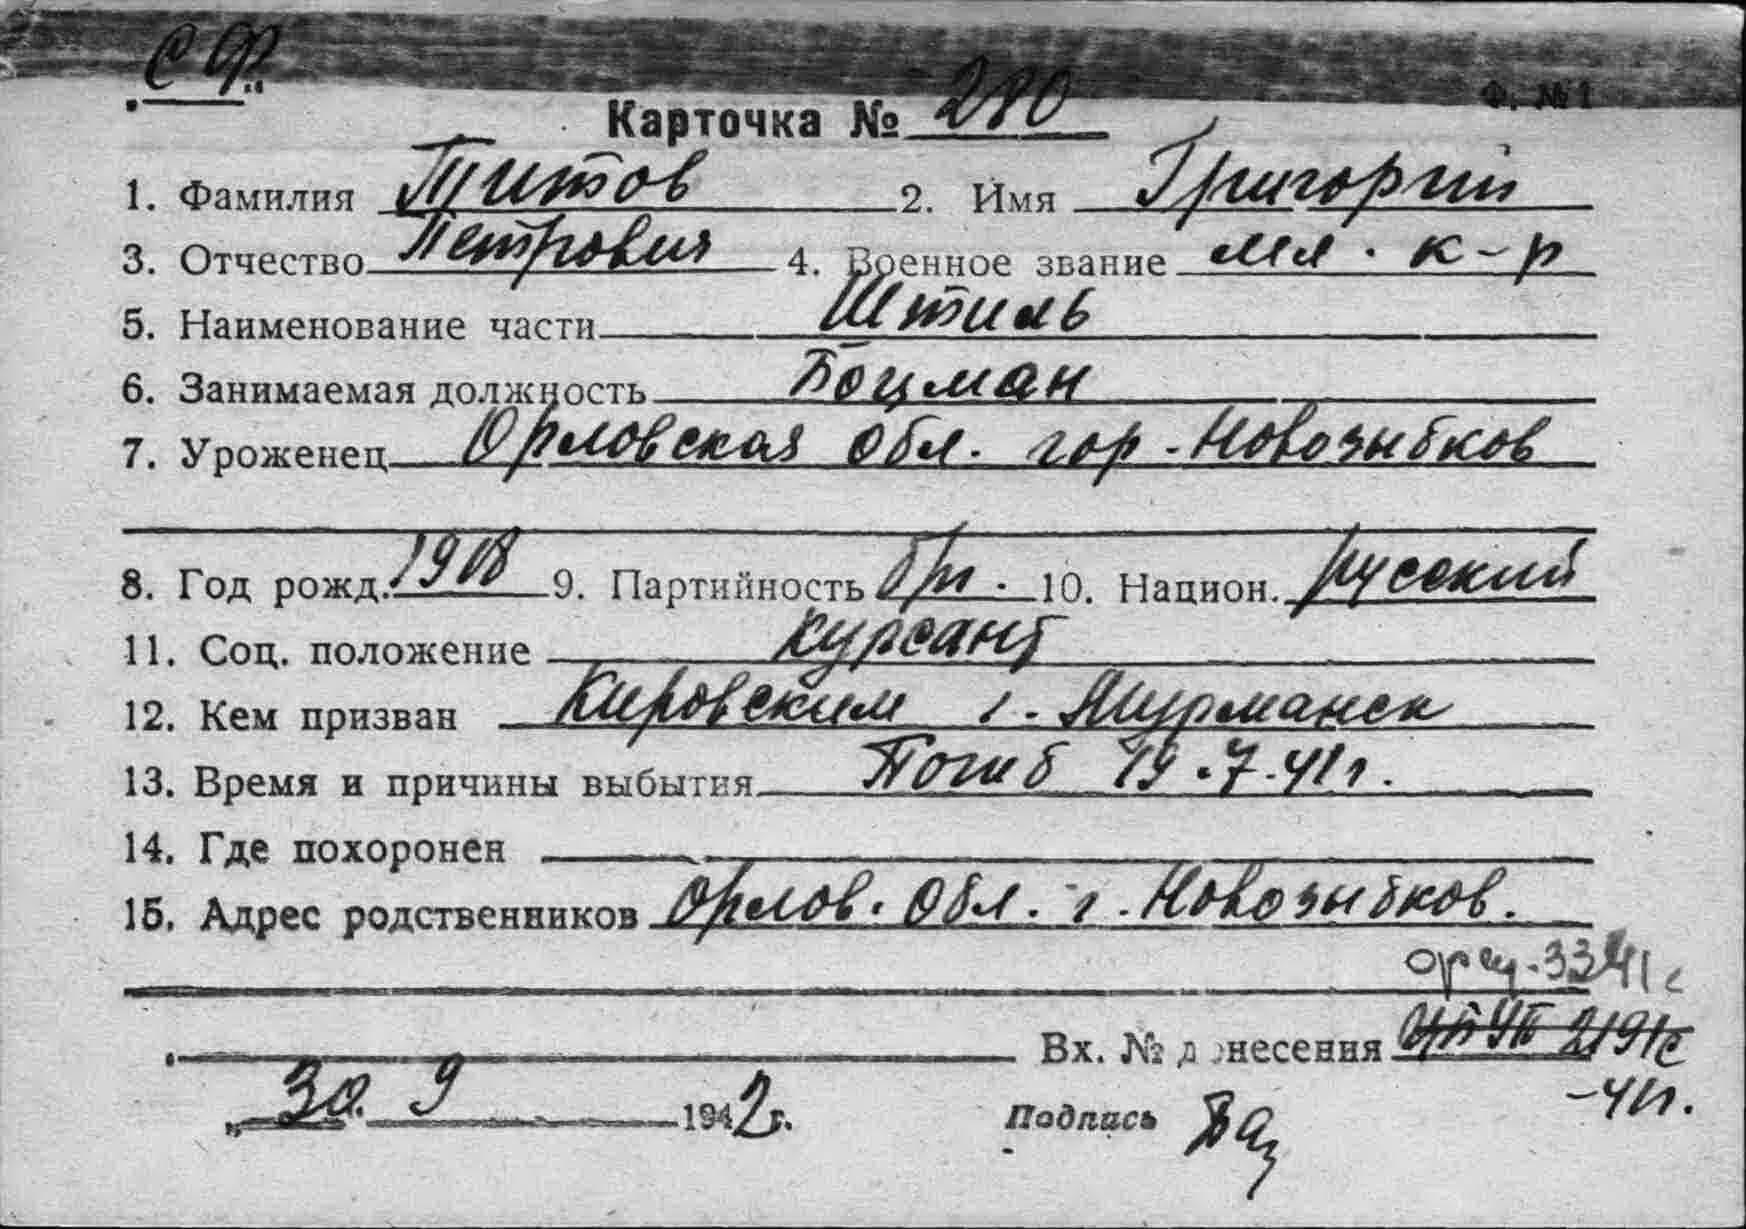 СФ
Ф. №1
Карточка № 280
1. Фамилия Титов 2. Имя Григорий
3. Отчество Петрович 4. Военное звание мл. к-р
5. Наименование части Штиль
6. Занимаемая должность Боцман
7. Уроженец Орловская обл. гор. Новозыбков
8. Год рожд. 1918 9. Партийность б/п. 10. Национ. русский
11. Соц. положение курсант
12. Кем призван Кировским г. Мурманск
13. Время и причины выбытия Погиб 19.7.41г.
14. Где похоронен
15. Адрес родственников Орлов. обл. г. Новозыбков.
Вх. № донесения
-41г.
„30. 9 1942г.
Подпись